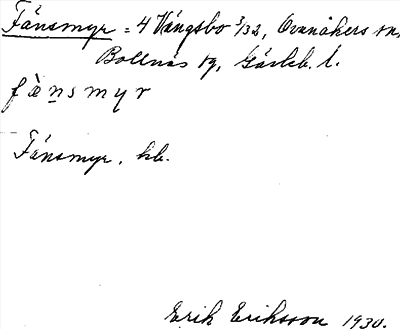 Fänsmyr = 4 Vängsbo 3/32, Ovanåkers sn,
Bollnäs tg, Gävleb. l.
fä̀nsmyr
Fänsmyr, hb.
Erik Eriksson 1930.